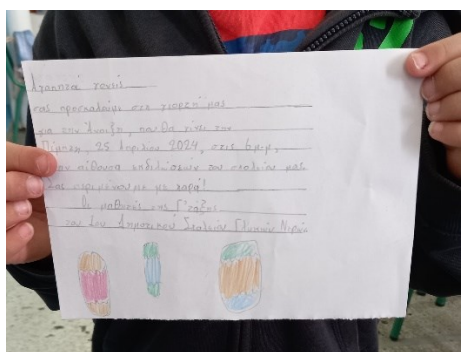 Αγαπητοί γονείς
σας προσκαλούμε στη γιορτή μας
για την Άνοιξη, που θα γίνει την
Πέμπτη, 25 Απριλίου 2024, στις 6μμ,
στην αίθουσα εκδηλώσεων του σχολείου μας
Σας περιμένουμε με χαρά!
Οι μαθητές της Γ' τάξης
του Δημοτικού Σχολείου Γλυκών Νερών